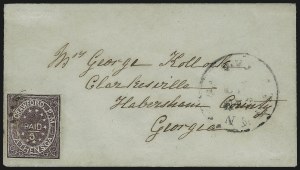 Mrs George Kollock
Clarkesville
Habersham County
Georgia
PAID